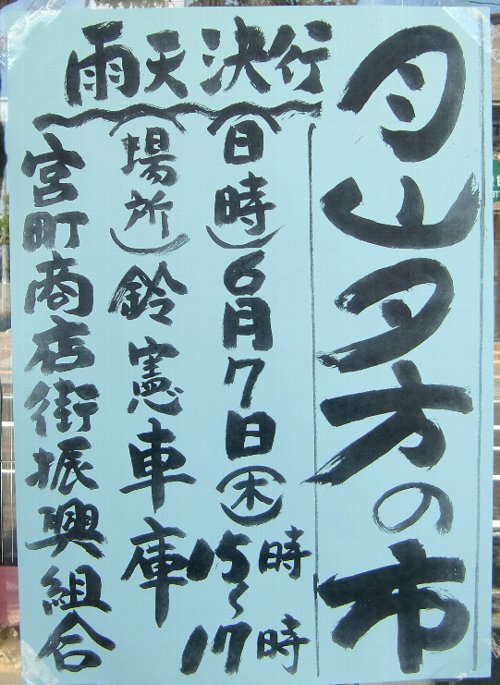 月山夕方の市
雨天決行
(日時)6月7日(木)15時~17時
(場所)鈴憲車庫
宮町商店街振興組合